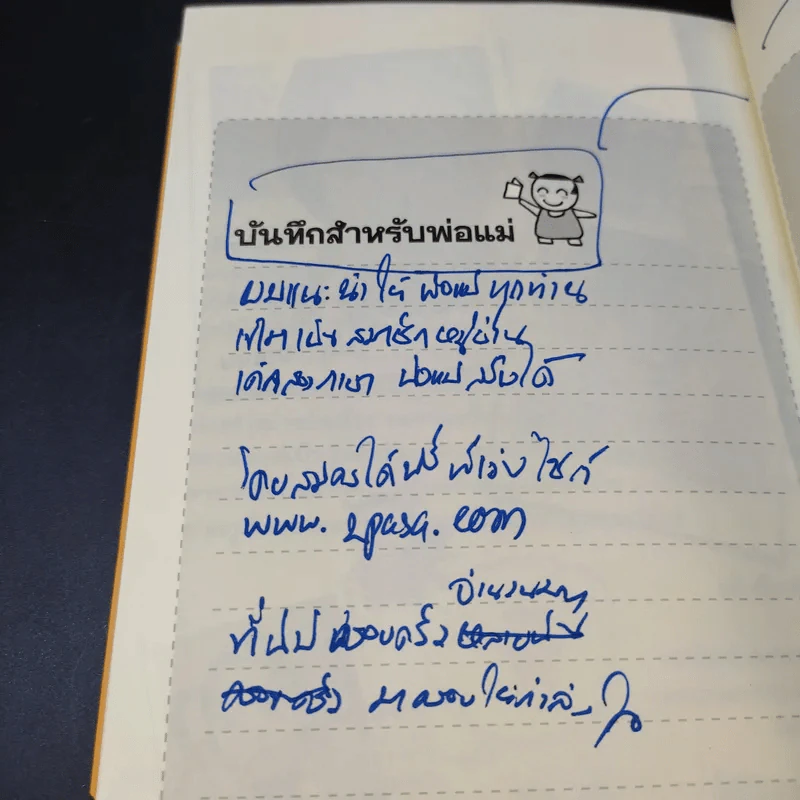 บันทึกสำหรับพ่อแม่
ผมแนะนำให้ พ่อแม่ ทุกท่าน
เข้ามาเป็น สมาชิก หมู่บ้าน
เด็กสองภาษา พ่อแม่ สร้างได้
โดยสมัครได้ฟรี ที่เว็บไซต์
www. 2pasa. com
จำนวนมาก
ที่นี่มี ครอบครัว
มาคอยให้กำลังใจ